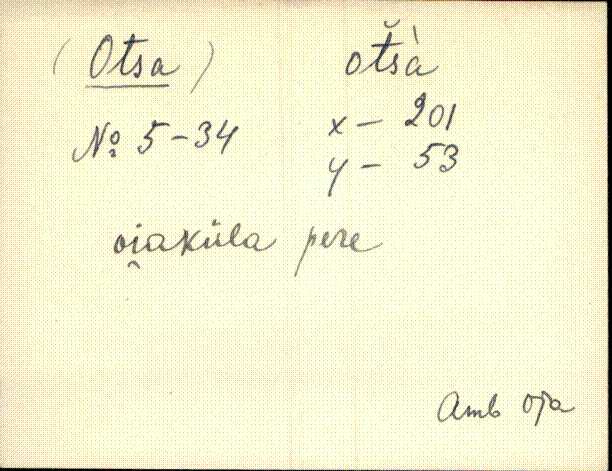 (Otsa) ot̆sà
№ 5-34 x - 201
y - 53
oi̭aküla pere
Amb Oja